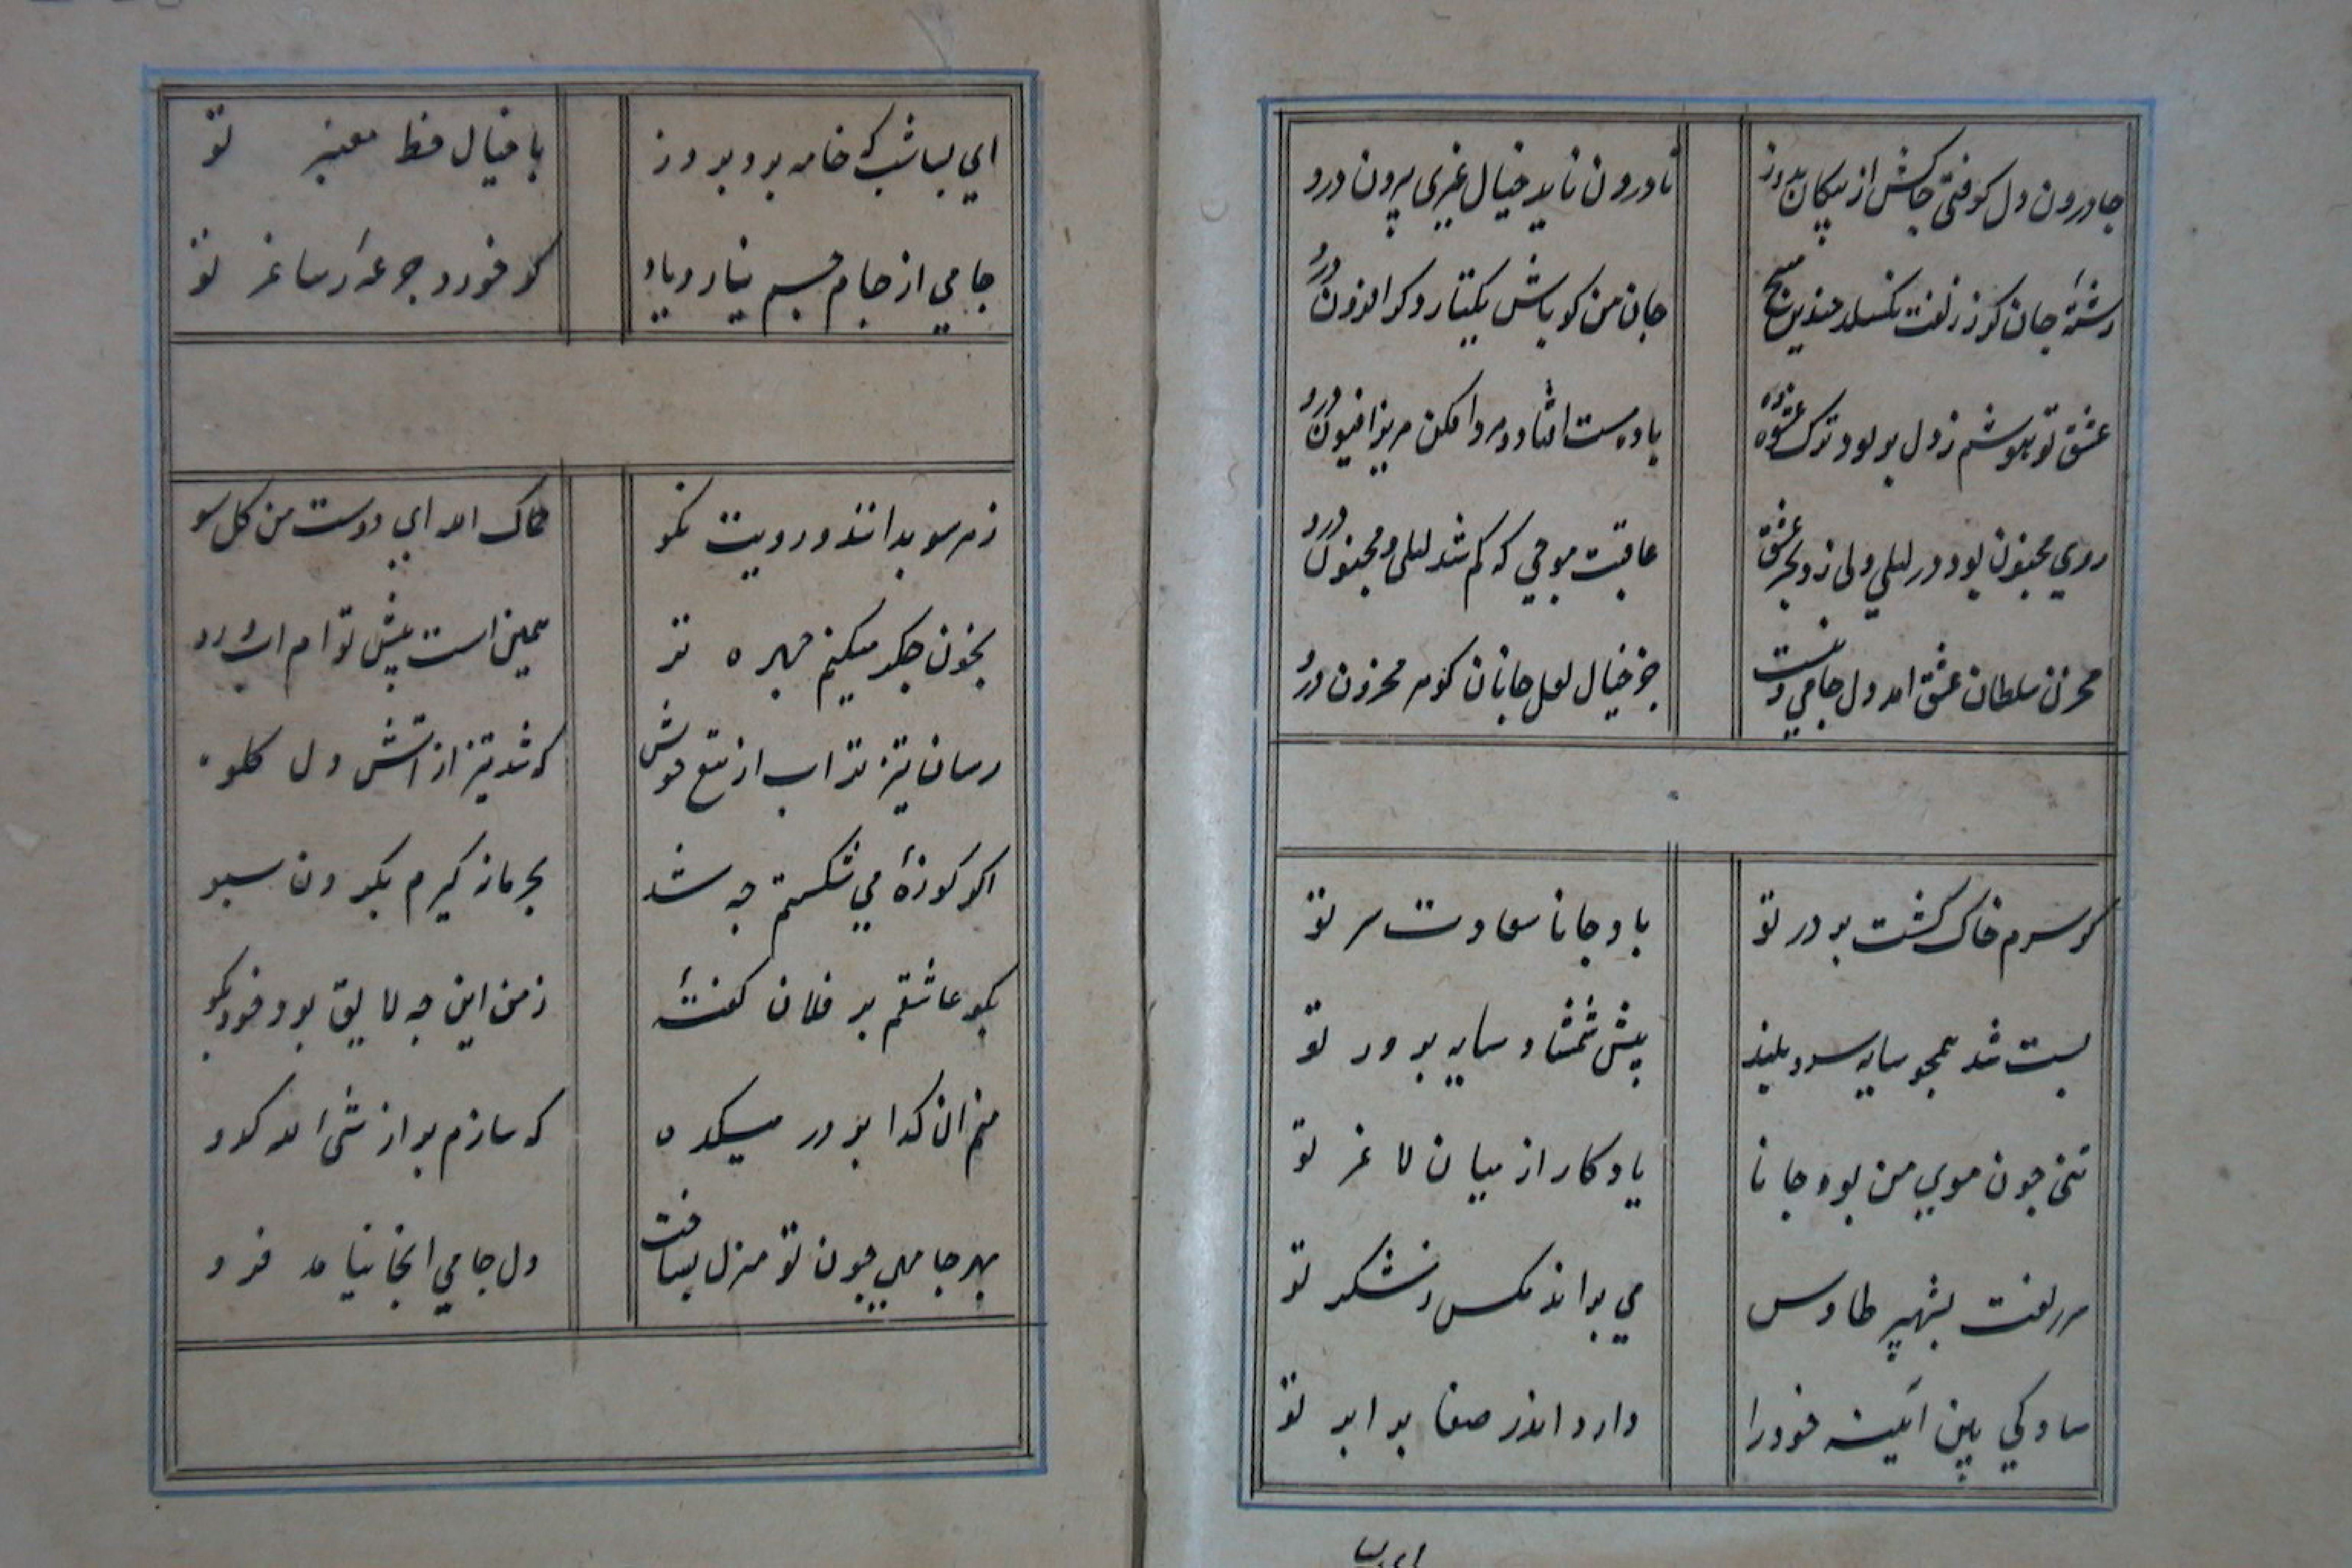 جا درون دل کوفتی جاکش از پیکان بدوز
تا درون ناید خیال غیری بیرون درو
رشتهٔ جان کوز زلفت نکسلد چندین مپیچ
جان من کو باش یکتار و کر افزون درو
عشق تو هوشم ز دل بر بود ترک عشوه ده
باده مست افتاد و مرد افکن مریز افیون درو
روی مجنون بود در لیلی ولی زد بحر عشق
عاقبت موجی که کم شد لیلی و مجنون درو
مخزن سلطان عشق امد دل جامی و نیست
جز خیال لعل جانان کوهر مخزون درو
کر سرم خاک کشت بر در تو
باد جانا سعادت سر تو
پست شد همچو سایه سرو بلند
پیش شمشاد سایه پرور تو
تنی چون موی من بود جانا
یادکار از میان لاغر تو
سر زلفت بشهپر طاوس
می براند مکس ز شکر تو
سادکی بین آیینه خود را
دارد اندر صفا برابر تو
ای بسا
ای بسا شب که خامه برد بروز
با خیال خط معنبر تو
جامی از جام جم نیارد یاد
کر خورد جرعهٔ ز ساغر تو
ز هر سو بدانند و رویت نکو
حماک الله ای دوست من کل سو
بخون جکر میکنم چهره تر
همین است پیش توام اب رو
رسان تیز تر اب از تیغ خویش
که شد تیز از اتش دل کلو
اکر کوزهٔ می شکستم چه شد
بجرماز کیرم بکردن سبو
بکو عاشقم بر فلان کفتهٔ
ز من این چه لایق بود خود بکو
منم ان کدا بر در میکده
که سازم پر از شی الله کدو
بهر جا مهی چون تو منزل بساخت
دل جامی انجا نیامد فرو